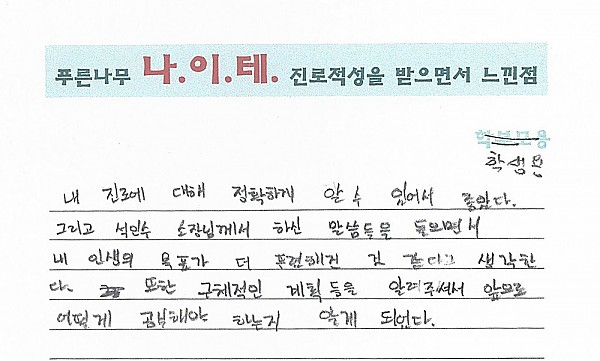 푸른나무 나.이.테. 진로적성을 받으면서 느낀점
학부모용
학생용
내 진로에 대해 정확하게 알 수 있어서 좋았다.
그리고 석인수 소장님께서 하신 말씀들을 들으면서
내 인생의 목표가 더 뚜렷해진 것 같다고 생각한
다. 또한 구체적인 계획등을 알려주셔서 앞으로
어떻게 공부해야 하는지 알게 되었다.